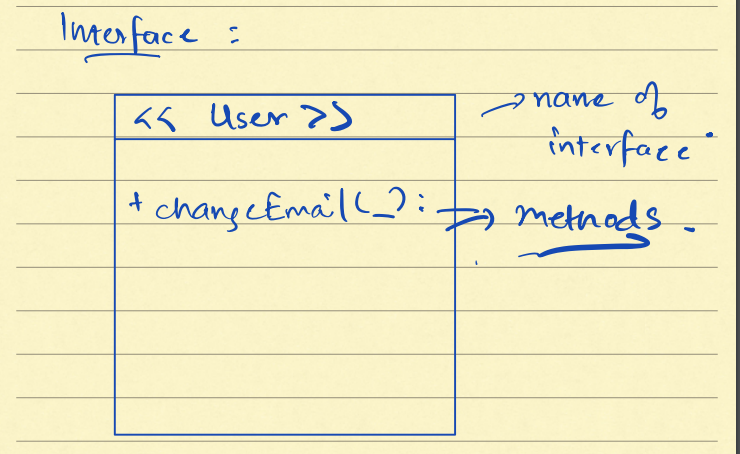 Interface :
<< User >>
→ name of
interface
+ changeEmail(_) :
→ methods.